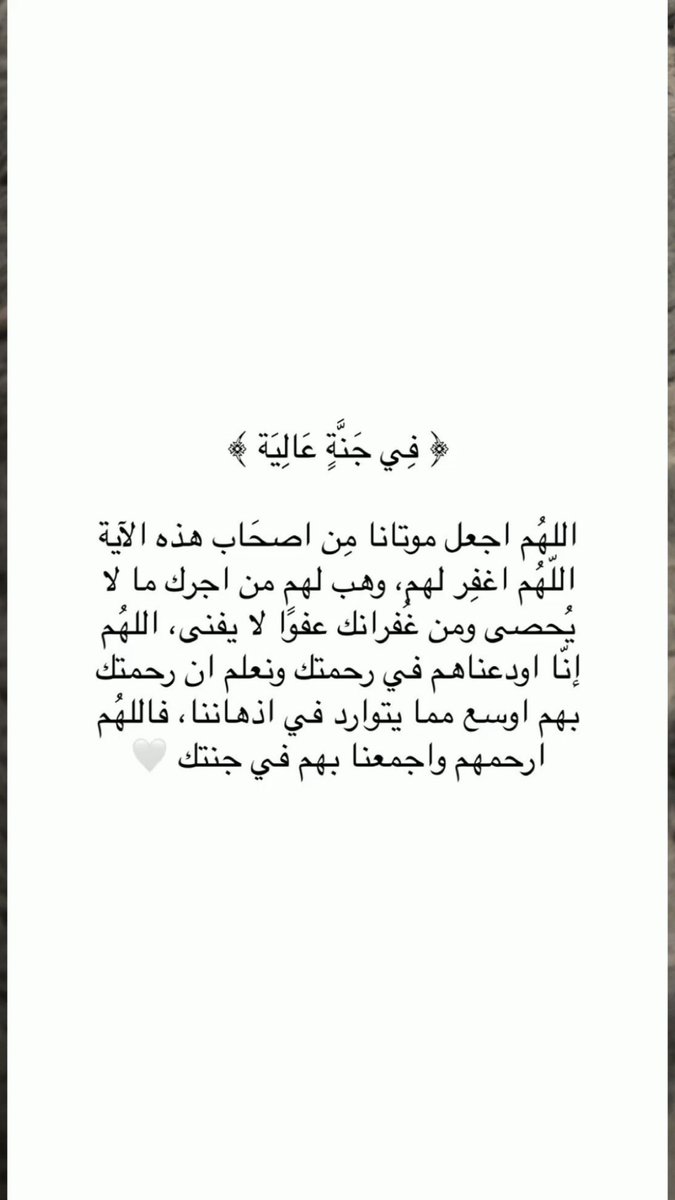 ﴿ فِي جَنَّةٍ عَالِيَة ﴾
اللهُم اجعل موتانا مِن اصحَاب هذه الآية
اللّهُم اغفِر لهم، وهب لهم من اجرك ما لا
يُحصى ومن غُفرانك عفوًا لا يفنى، اللهُم
إنّا اودعناهم في رحمتك ونعلم ان رحمتك
بهم اوسع مما يتوارد في اذهاننا، فاللهُم
ارحمهم واجمعنا بهم في جنتك 🤍